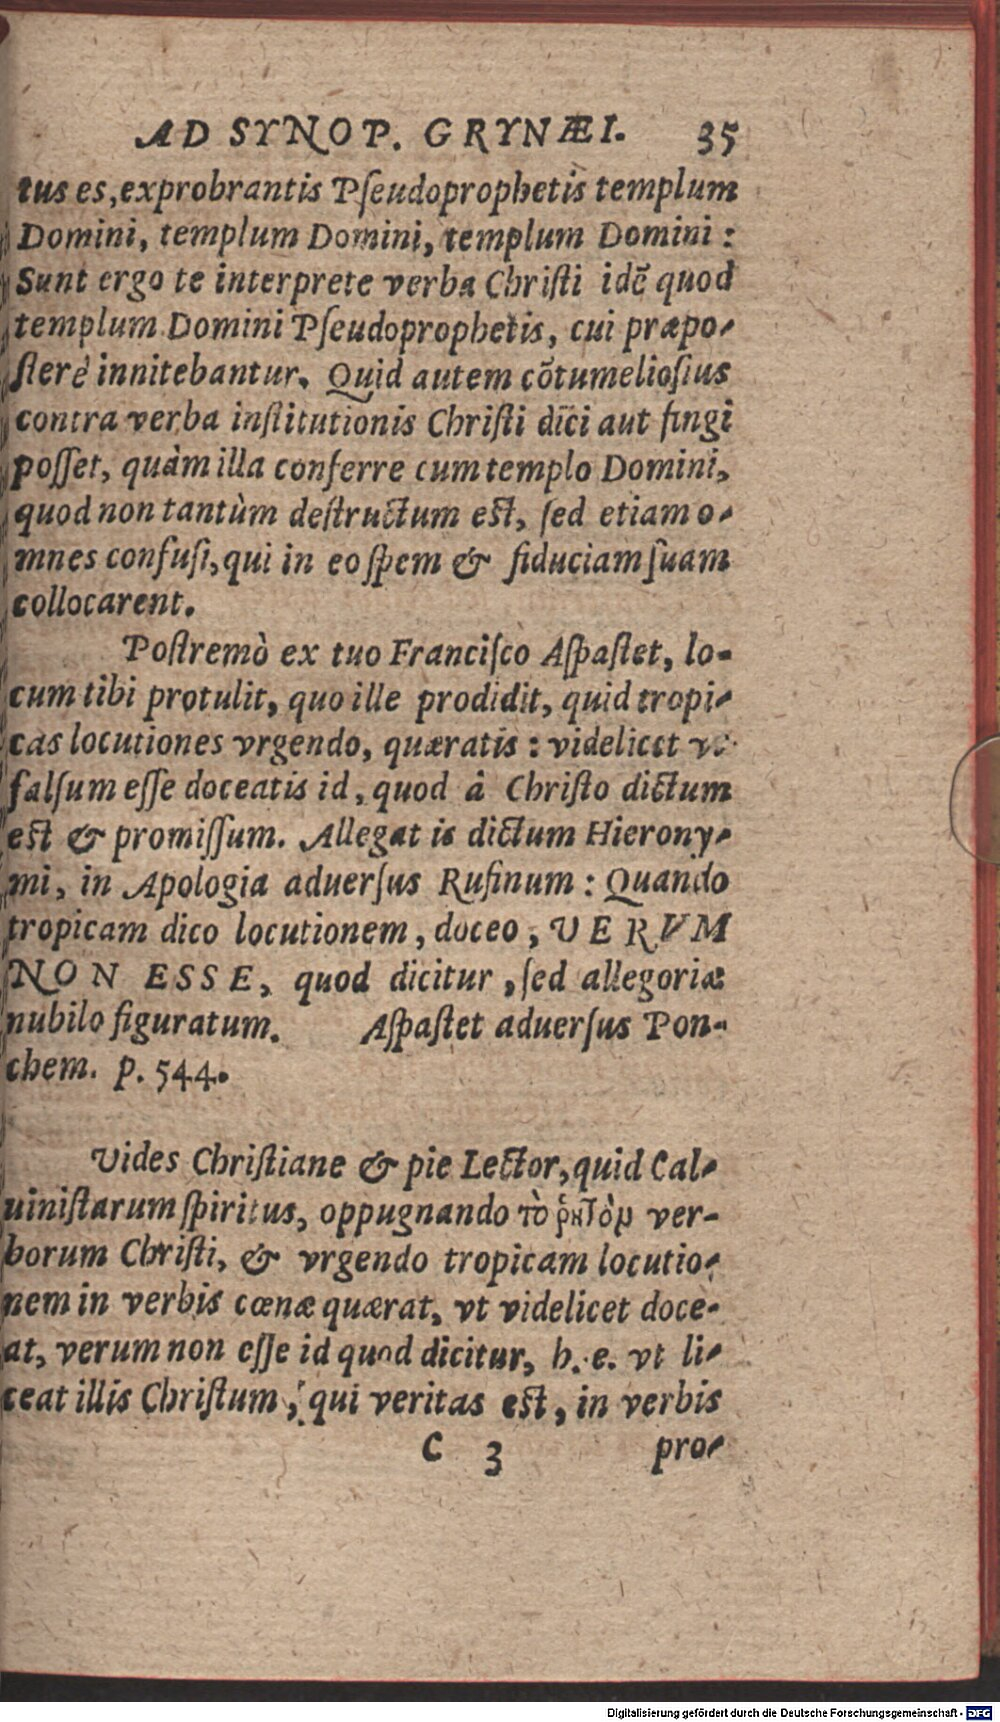 AD SYNOP. GRYNÆI. 35
tus es, exprobrantis Pſeudoprophetis templum
Domini, templum Domini, templum Domini:
Sunt ergo te interprete verba Chriſti idē quod
templum Domini Pſeudoprophetis, cui præpo-
ſterè innitebantur. Quid autem cōtumelioſius
contra verba inſtitutionis Chriſti dīci aut fingi
poſſet, quàm illa conferre cum templo Domini,
quod non tantùm deſtructum eſt, ſed etiam o-
mnes confuſi, qui in eo ſpem & fiduciam ſuam
collocarent.
Poſtremò ex tuo Franciſco Aſpaſtet, lo-
cum tibi protulit, quo ille prodidit, quid tropi-
cas locutiones vrgendo, quæratis: videlicet
falſum eſſe doceatis id, quod à Chriſto dictum
eſt & promiſſum. Allegat is dictum Hierony-
mi, in Apologia aduerſus Rufinum: Quando
tropicam dico locutionem, doceo, VERVM
NON ESSE, quod dicitur, ſed allegoriæ
nubilo figuratum. Aſpaſtet aduerſus Pon-
chem. p. 544.
Vides Chriſtiane & pie Lector, quid Cal-
uiniſtarum ſpiritus, oppugnando τὸ ῥητὸμ ver-
borum Chriſti, & vrgendo tropicam locutio-
nem in verbis cœnæ quærat, vt videlicet doce-
at, verum non eſſe id quod dicitur, h. e. vt li-
ceat illis Chriſtum, qui veritas eſt, in verbis
C 3 pro-
Digitalisierung gefördert durch die Deutsche Forschungsgemeinschaft - DFG